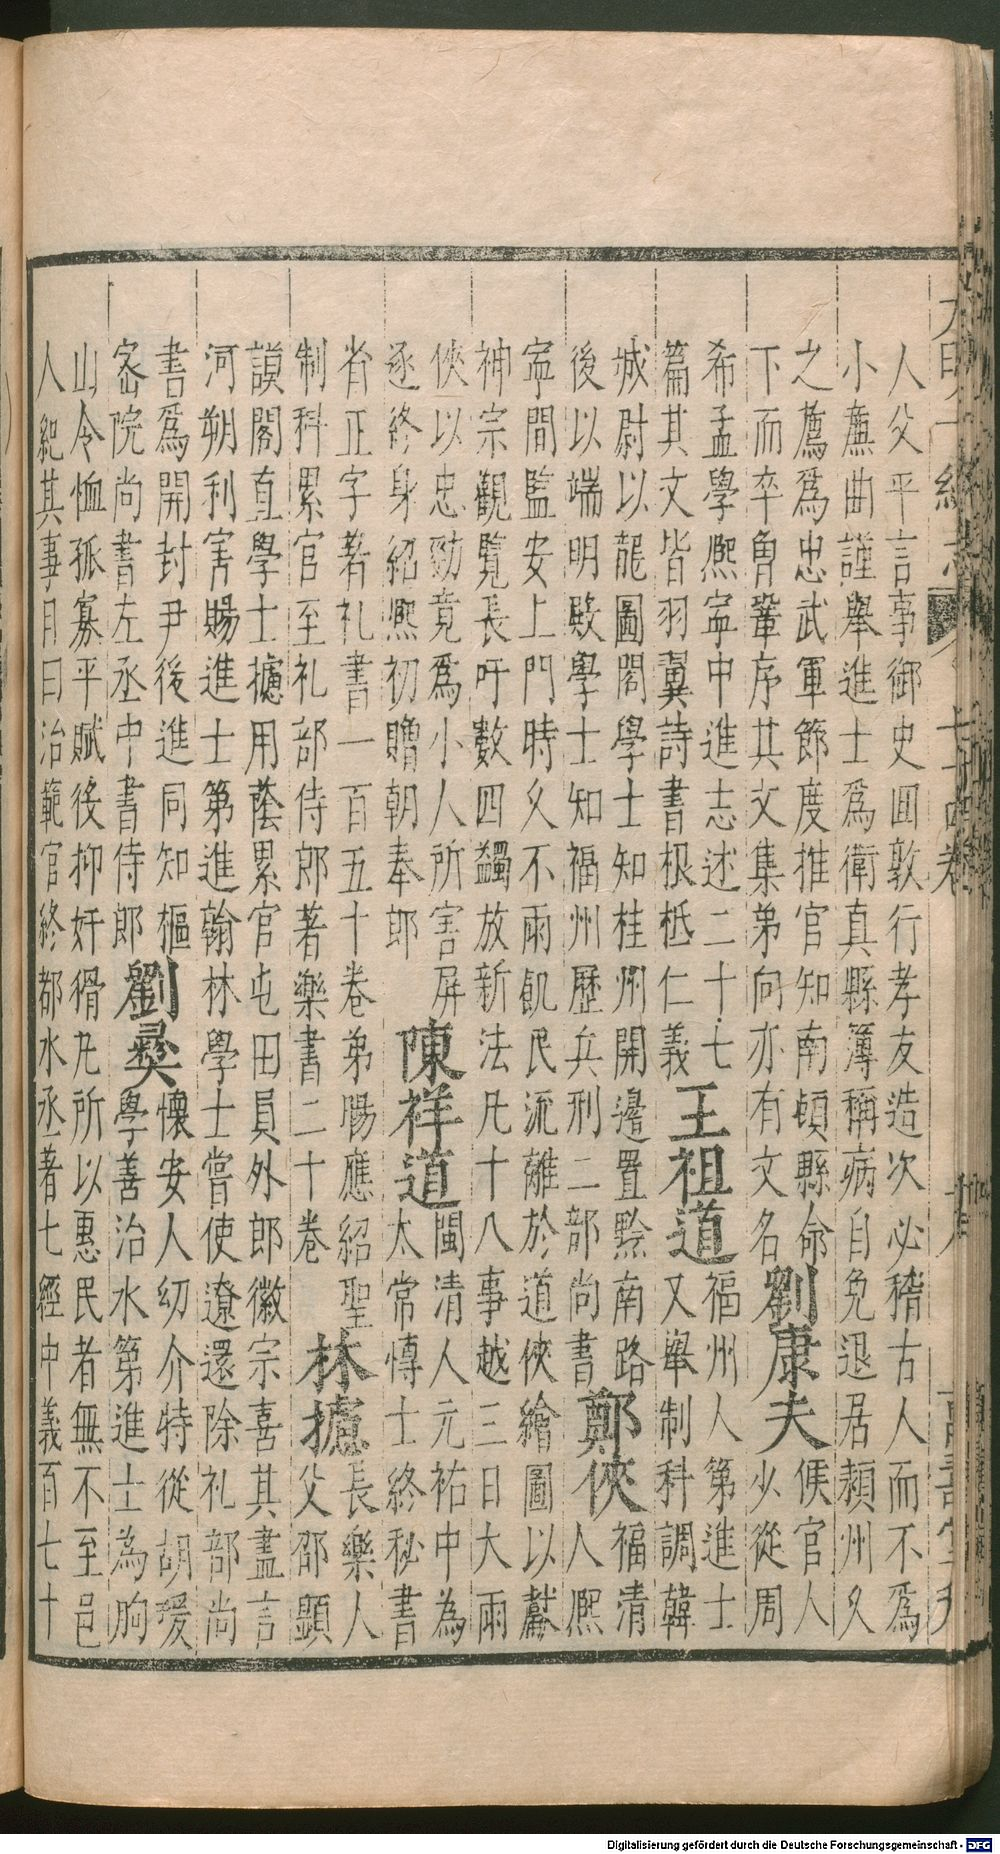 人父平言事御史囬敦行孝友造次必稽古人而不爲
小㢘曲謹舉進士爲衛真縣簿稱病自免退居頴州久
之薦爲忠武軍節度推官知南頓縣命劉康夫侯官人
下而卒曾鞏序其文集弟向亦有文名少從周
希孟學熈寜中進志述二十七王祖道福州人第進士
篇其文皆羽翼詩書根柢仁義又舉制科調韓
城尉以龍圖閣學士知桂州開邊置黔南路福清
後以端明殿學士知福州歷兵刑二部尚書鄭俠人熈
寜間監安上門時久不雨飢民流離於道俠繪圖以獻
神宗觀覽長吁數四蠲放新法凡十八事越三日大雨
俠以忠勁竟爲小人所害屏陳祥道閩清人元祐中為
逐終身紹熈初贈朝奉郎太常愽士終秘書
省正字著礼書一百五十卷弟暘應紹聖林攄長樂人
制科累官至礼部侍郎著樂書二十卷父邵顯
謨閣直學士攄用蔭累官屯田員外郎徽宗喜其盡言
河朔利害賜進士第進翰林學士嘗使遼還除礼部尚
書爲開封尹後進同知樞劉彛懷安人幼介特從胡瑗
宻院尚書左丞中書侍郎學善治水第進士為朐
山令恤孤寡平賦後抑奸猾凡所以惠民者無不至邑
人紀其事目曰治範官終都水丞著七經中義百七十
Digitalisierung gefördert durch die Deutsche Forschungsgemeinschaft - DFG